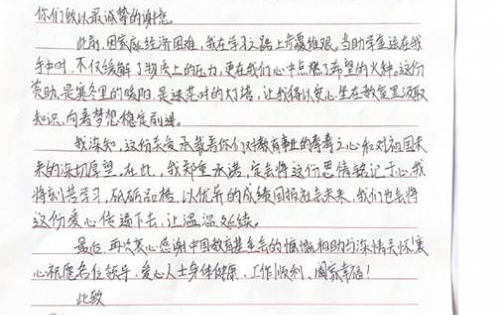 你们致以最诚挚的谢意。
此前,因家庭经济困难,我在学习之路上步履维艰,当助学金送在我
手中时,不仅缓解了物质上的压力,更在我们心中点燃了希望的火种。这份
资助,是寒冬里的暖阳,是迷茫时的灯塔,让我得以安心坐在教室里汲取
知识,向着梦想稳定前进。
我深知,这份关爱承载着你们对教育事业的赤诚之心和对祖国未
来的深切厚望。在此,我郑重承诺,定会将这份恩情铭记于心,我
将刻苦学习,砥砺品格,以优异的成绩回报社会未来,我们也会将
这份爱心传递下去,让温温延续。
最后,再次衷心感谢中国教育基金会的慷慨相助与深情关怀!衷
心祝愿各位领导、爱心人士身体健康、工作顺利、阖家幸福!
此致